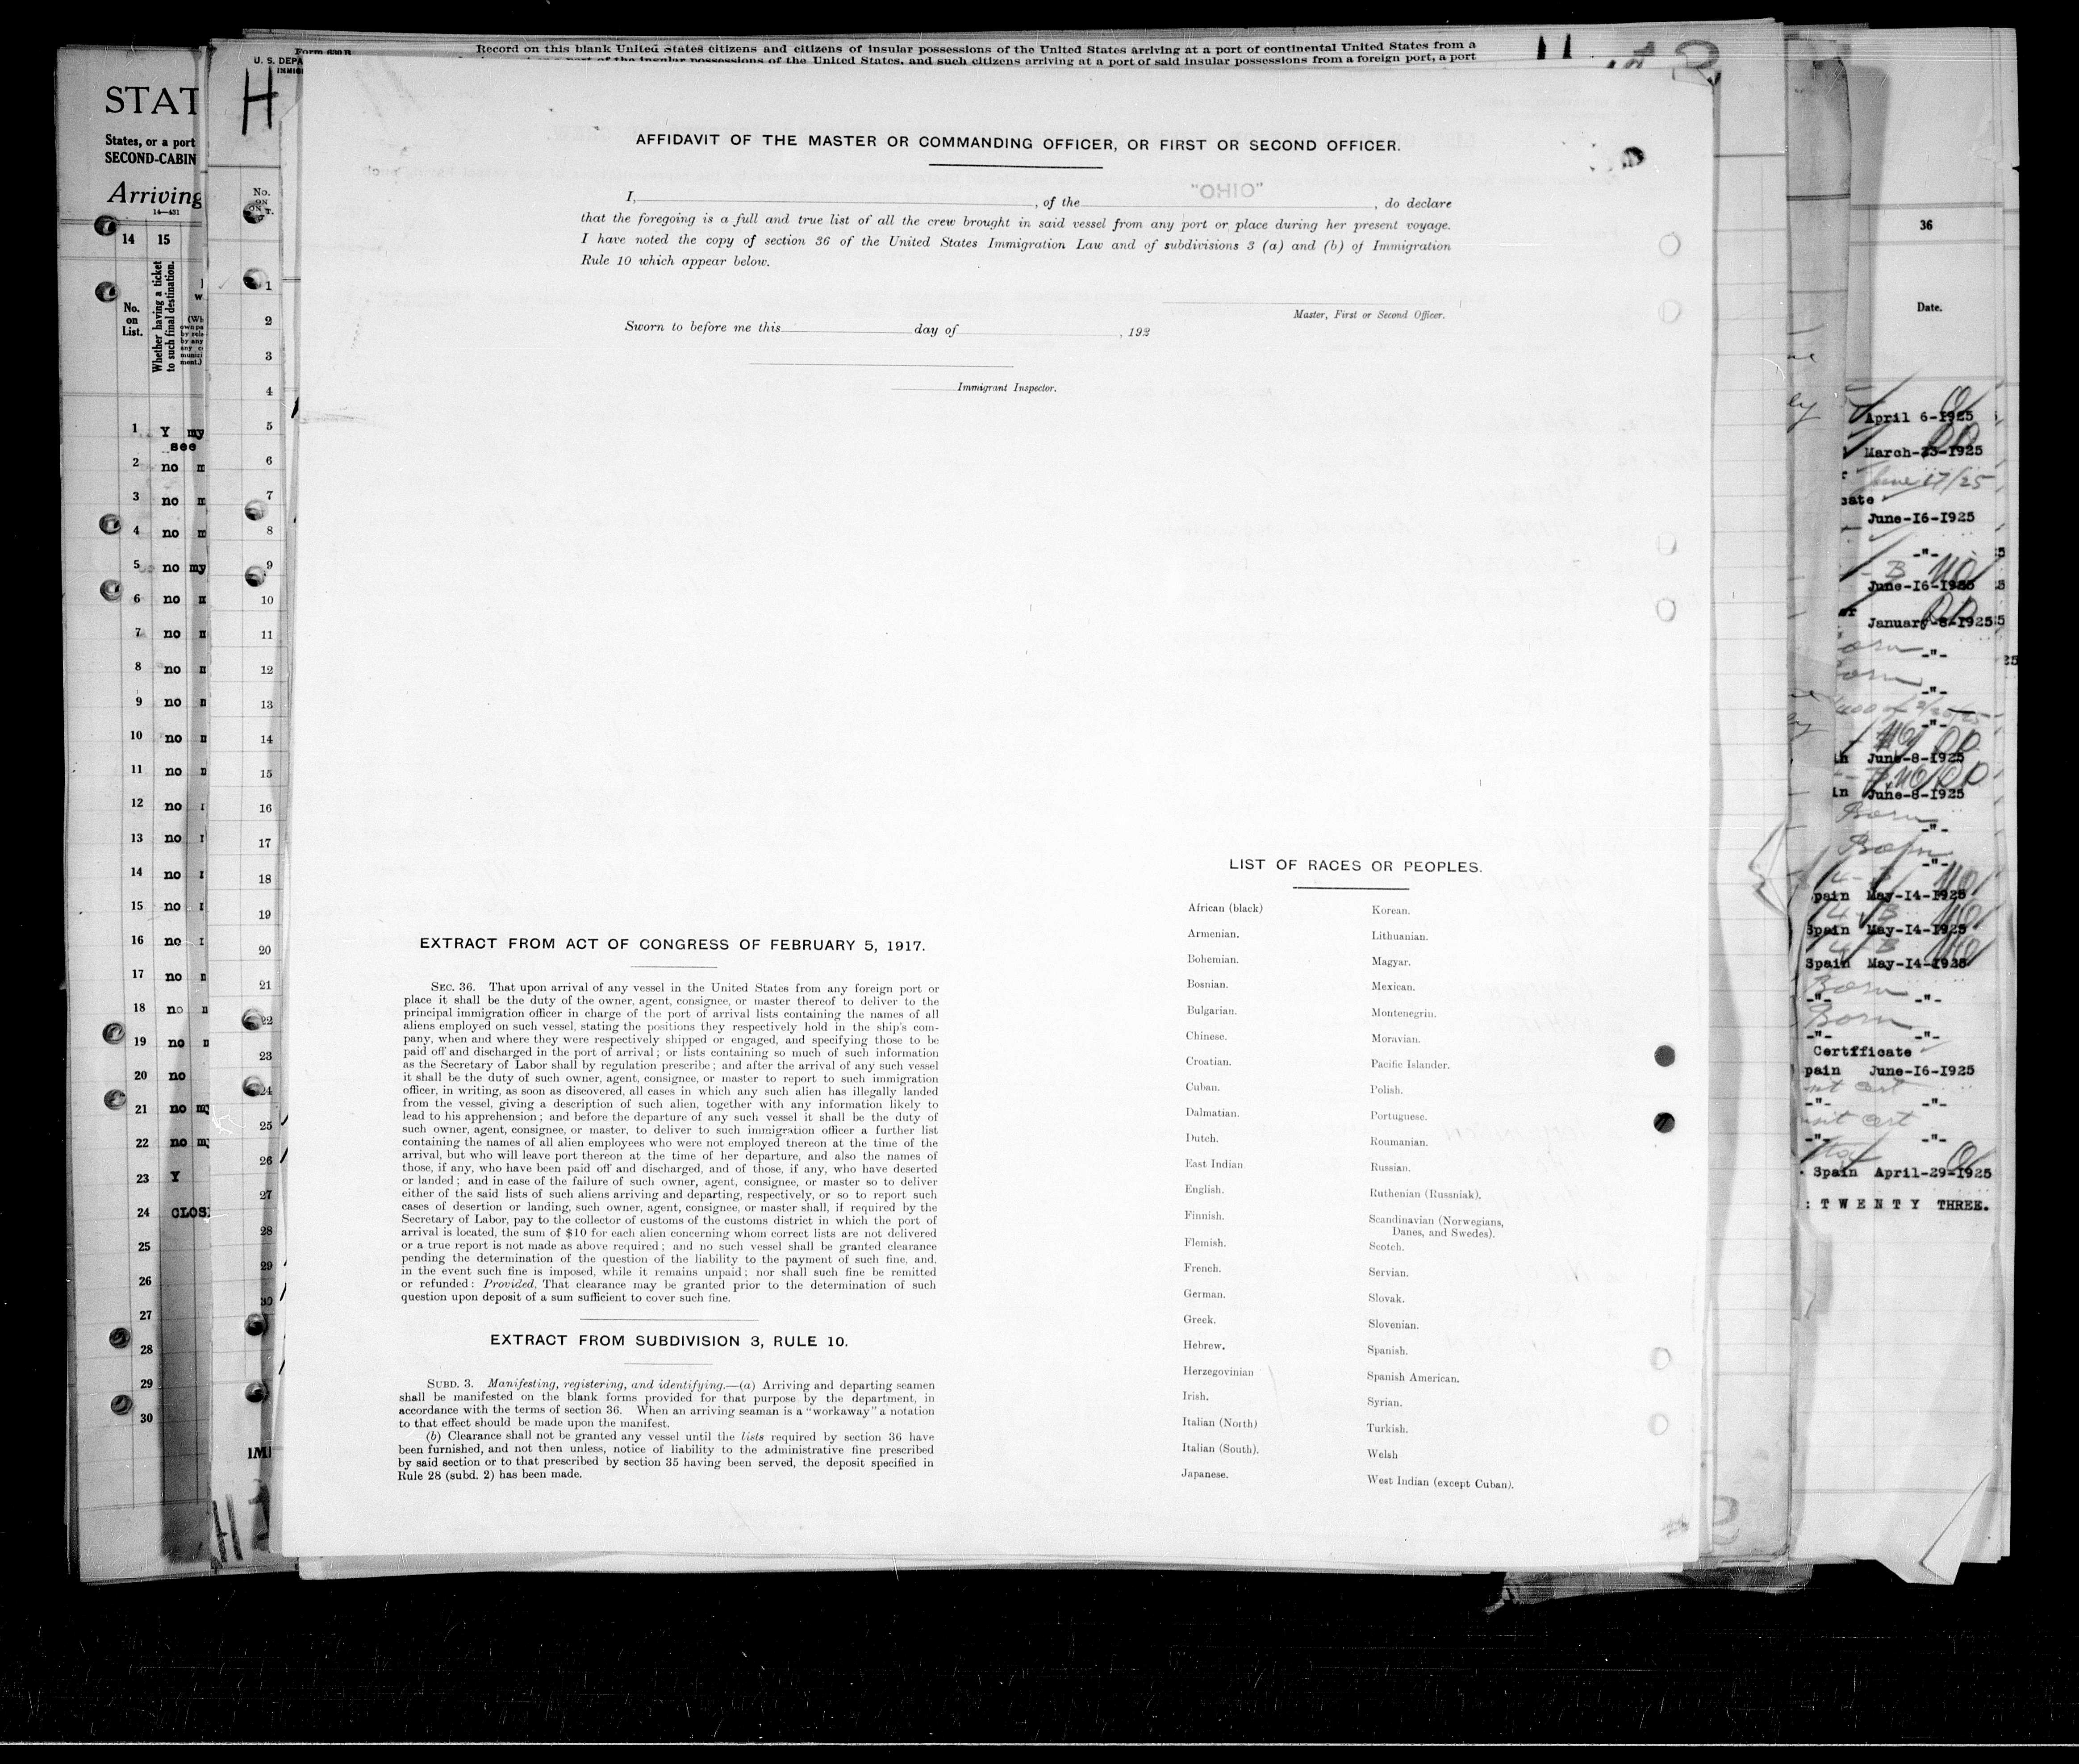 Form 630 B
U. S. DEPA
Record on this blank United States citizens and citizens of insular possessions of the United States arriving at a port of continental United States from a
of the insular possessions of the United States, and such citizens arriving at a port of said insular possessions from a foreign port, a port
H
STAT
States, or a port
SECOND-CABIN
Arriving
14—431
14 15
No. on List.
Whether having a ticket to such final destination.
1 Y my
see
2 no m
3 no m
4 no m
5 no my
6 no m
7 no
8 no
9 no
10 no
11 no
12 no
13 no
14 no
15 no
16 no
17 no
18 no
19 no
20 no
21 no my
22 no my
23 Y
24 CLOS
25
26
27
28
29
30
No.
1
2
3
4
5
6
7
8
9
10
11
12
13
14
15
16
17
18
19
20
21
22
23
24
25
26
27
28
29
30
AFFIDAVIT OF THE MASTER OR COMMANDING OFFICER, OR FIRST OR SECOND OFFICER.
"OHIO"
I, , of the , do declare
that the foregoing is a full and true list of all the crew brought in said vessel from any port or place during her present voyage.
I have noted the copy of section 36 of the United States Immigration Law and of subdivisions 3 (a) and (b) of Immigration
Rule 10 which appear below.
Master, First or Second Officer.
Sworn to before me this day of , 192
Immigrant Inspector.
EXTRACT FROM ACT OF CONGRESS OF FEBRUARY 5, 1917.
SEC. 36. That upon arrival of any vessel in the United States from any foreign port or
place it shall be the duty of the owner, agent, consignee, or master thereof to deliver to the
principal immigration officer in charge of the port of arrival lists containing the names of all
aliens employed on such vessel, stating the positions they respectively hold in the ship's com-
pany, when and where they were respectively shipped or engaged, and specifying those to be
paid off and discharged in the port of arrival; or lists containing so much of such information
as the Secretary of Labor shall by regulation prescribe; and after the arrival of any such vessel
it shall be the duty of such owner, agent, consignee, or master to report to such immigration
officer, in writing, as soon as discovered, all cases in which any such alien has illegally landed
from the vessel, giving a description of such alien, together with any information likely to
lead to his apprehension; and before the departure of any such vessel it shall be the duty of
such owner, agent, consignee, or master, to deliver to such immigration officer a further list
containing the names of all alien employees who were not employed thereon at the time of the
arrival, but who will leave port thereon at the time of her departure, and also the names of
those, if any, who have been paid off and discharged, and of those, if any, who have deserted
or landed; and in case of the failure of such owner, agent, consignee, or master so to deliver
either of the said lists of such aliens arriving and departing, respectively, or so to report such
cases of desertion or landing, such owner, agent, consignee, or master shall, if required by the
Secretary of Labor, pay to the collector of customs of the customs district in which the port of
arrival is located, the sum of $10 for each alien concerning whom correct lists are not delivered
or a true report is not made as above required; and no such vessel shall be granted clearance
pending the determination of the question of the liability to the payment of such fine, and,
in the event such fine is imposed, while it remains unpaid; nor shall such fine be remitted
or refunded: Provided, That clearance may be granted prior to the determination of such
question upon deposit of a sum sufficient to cover such fine.
EXTRACT FROM SUBDIVISION 3, RULE 10.
SUBD. 3. Manifesting, registering, and identifying.—(a) Arriving and departing seamen
shall be manifested on the blank forms provided for that purpose by the department, in
accordance with the terms of section 36. When an arriving seaman is a "workaway" a notation
to that effect should be made upon the manifest.
(b) Clearance shall not be granted any vessel until the lists required by section 36 have
been furnished, and not then unless, notice of liability to the administrative fine prescribed
by said section or to that prescribed by section 35 having been served, the deposit specified in
Rule 28 (subd. 2) has been made.
LIST OF RACES OR PEOPLES.
African (black)
Armenian.
Bohemian.
Bosnian.
Bulgarian.
Chinese.
Croatian.
Cuban.
Dalmatian.
Dutch.
East Indian
English.
Finnish.
Flemish.
French.
German.
Greek.
Hebrew.
Herzegovinian
Irish.
Italian (North)
Italian (South).
Japanese.
Korean.
Lithuanian.
Magyar.
Mexican.
Montenegrin.
Moravian.
Pacific Islander.
Polish.
Portuguese.
Roumanian.
Russian.
Ruthenian (Russniak).
Scandinavian (Norwegians,
Danes, and Swedes).
Scotch.
Servian.
Slovak.
Slovenian.
Spanish.
Spanish American.
Syrian.
Turkish.
Welsh
West Indian (except Cuban).
36
Date.
April 6-1925
March-23-1925
June 17/25
June-16-1925
-"-
June-16-1925
January-8-1925
-"-
-"-
-"-
June-8-1925
June-8-1925
Born -"-
Born -"-
pain May-14-1925
Spain May-14-1925
Spain May-14-1925
Born
-"- -"-
Born
-"- -"-
Certificate
pain June-16-1925
-"- -"-
-"- -"-
Spain April-29-1925
: TWENTY THREE.